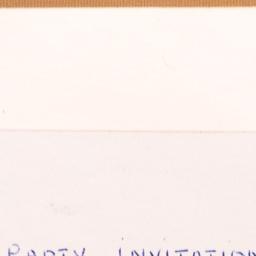 PARTY INVITATION